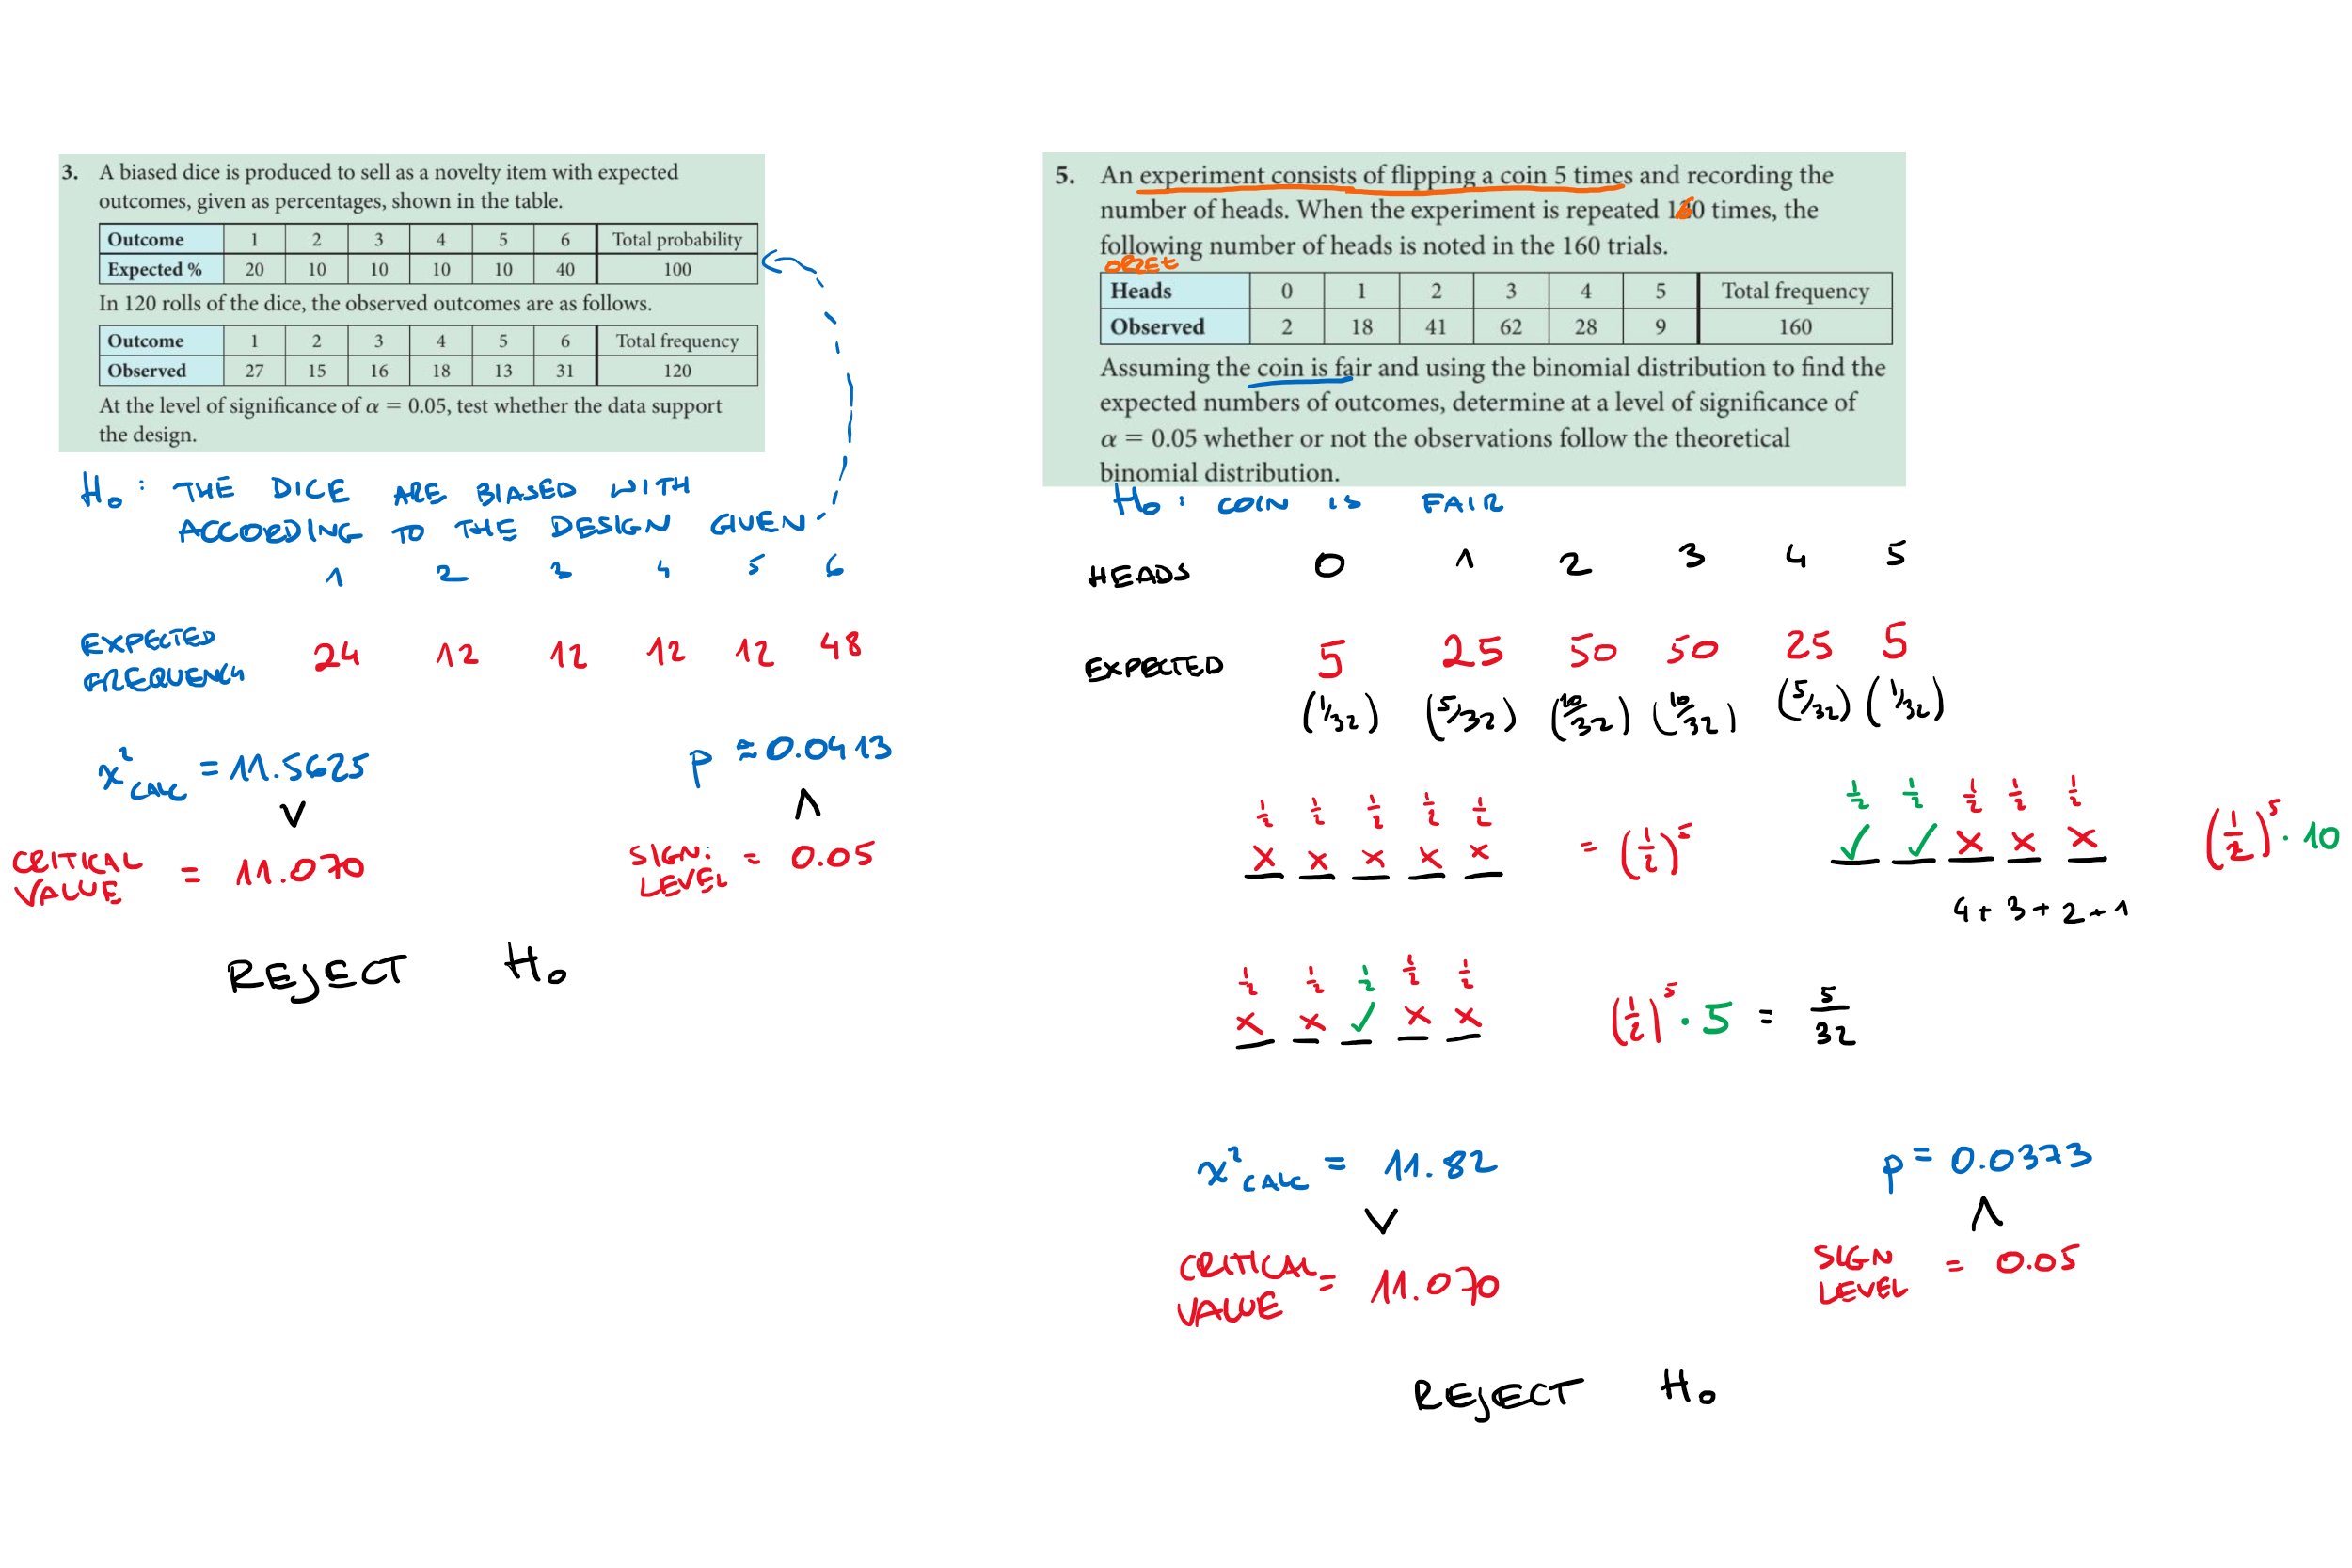 3. A biased dice is produced to sell as a novelty item with expected
outcomes, given as percentages, shown in the table.
Outcome 1 2 3 4 5 6 Total probability
Expected % 20 10 10 10 10 40 100
In 120 rolls of the dice, the observed outcomes are as follows.
Outcome 1 2 3 4 5 6 Total frequency
Observed 27 15 16 18 13 31 120
At the level of significance of α = 0.05, test whether the data support
the design.
H₀ : THE DICE ARE BIASED WITH
ACCORDING TO THE DESIGN GIVEN
1 2 3 4 5 6
EXPECTED
FREQUENCY 24 12 12 12 12 48
x²CALC = 11.5625 p ≈ 0.0413
V Λ
CRITICAL VALUE = 11.070 SIGN. LEVEL = 0.05
REJECT H₀
5. An experiment consists of flipping a coin 5 times and recording the
number of heads. When the experiment is repeated 160 times, the
following number of heads is noted in the 160 trials.
Heads 0 1 2 3 4 5 Total frequency
Observed 2 18 41 62 28 9 160
Assuming the coin is fair and using the binomial distribution to find the
expected numbers of outcomes, determine at a level of significance of
α = 0.05 whether or not the observations follow the theoretical
binomial distribution.
H₀ : COIN IS FAIR
HEADS 0 1 2 3 4 5
EXPECTED 5 25 50 50 25 5
(1/32) (5/32) (10/32) (10/32) (5/32) (1/32)
1/2 1/2 1/2 1/2 1/2 1/2 1/2 1/2 1/2 1/2
x x x x x = (1/2)⁵ ✓ ✓ x x x (1/2)⁵ · 10
4 + 3 + 2 + 1
1/2 1/2 1/2 1/2 1/2
x x ✓ x x (1/2)⁵ · 5 = 5/32
x²CALC = 11.82 p = 0.0373
V Λ
CRITICAL VALUE = 11.070 SIGN LEVEL = 0.05
REJECT H₀